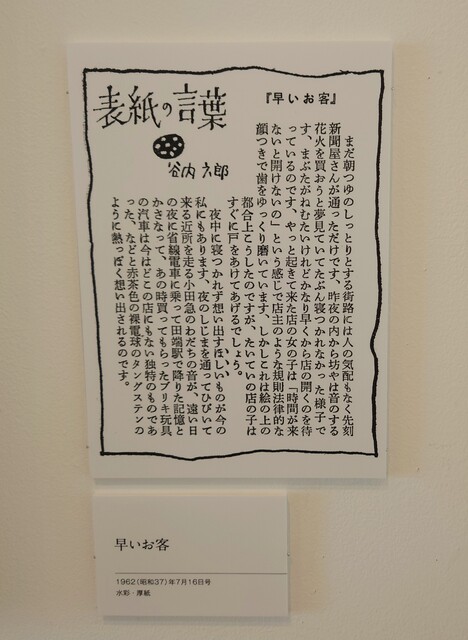 表紙の言葉
谷内六郎
『早いお客』
まだ朝つゆのしっとりとする街路には人の気配もなく先刻
新聞屋さんが通っただけです、昨夜の内から坊やは音のする
花火を買おうと夢見ていてたぶん寝つかれなかった様子で
す、まぶたがねむたいけれどかなり早くから店の開くのを待
っているのです、やっと起きて来た店の女の子は「時間が来
ないと開けないの」という感じで店主のような規則法律的な
顔つきで歯をゆっくり磨いています、しかしこれは絵の上の
都合上こうしたのですが、たいていの店の子は
すぐに戸をあけてあげるでしょう。
夜中に寝つかれず想い出すほしいものが今の
私にもあります、夜のしじまを通ってひびいて
来る近所を走る小田急のわだちの音が、遠い日
の夜に省線電車に乗って田端駅で降りた記憶と
かさなって、あの時買ってもらったブリキ玩具
の汽車は今はどこの店にもない独特のものであ
った、などと赤茶色の裸電球のタングステンの
ように熱っぽく想い出されるのです。
早いお客
1962(昭和37)年7月16日号
水彩・厚紙